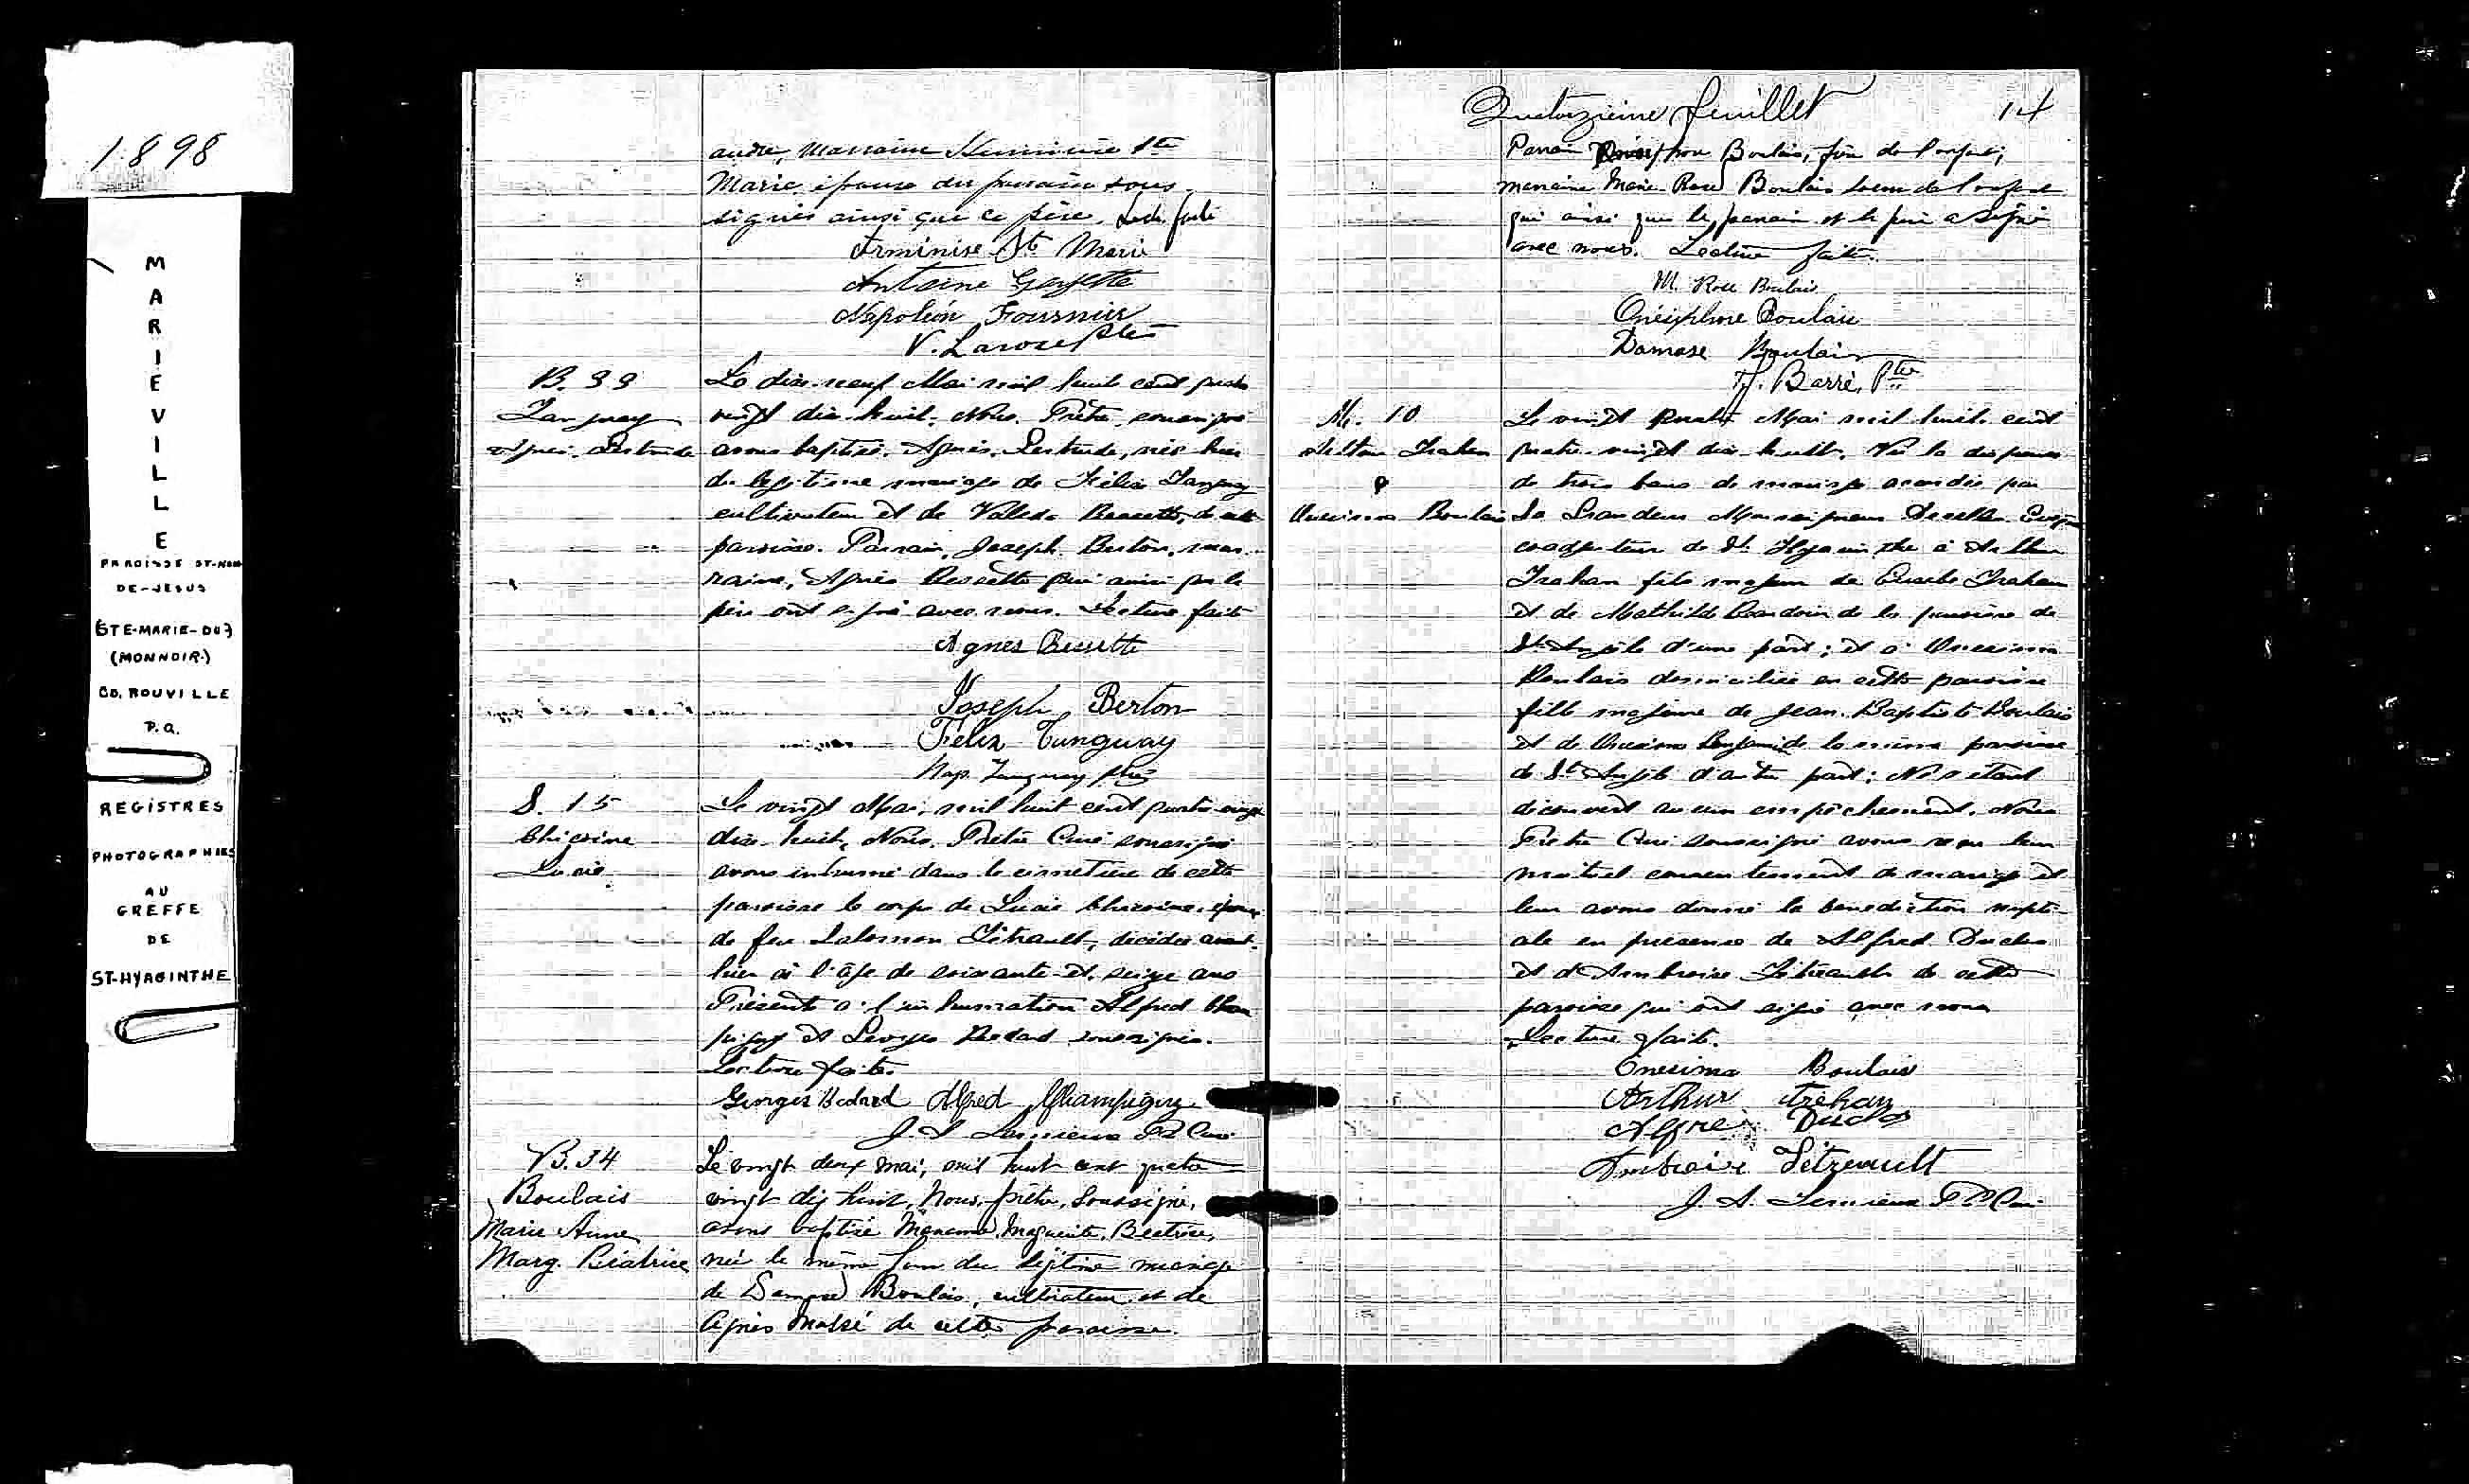 1898
MARIEVILLE
PAROISSE ST-NOM
DE-JESUS
(STE-MARIE-DU
(MONNOIR)
CO. ROUVILLE
P.Q.
REGISTRES
PHOTOGRAPHIES
AU
GREFFE
DE
ST-HYACINTHE
marraine Ste
Marie épouse du parrain sous
signés ainsi que le père. Lect. faite
Arminise Ste Marie
Antoine Goyette
Napoléon Fournier
V. Larose Ptre
B. 33
Tanguay
Agnès. Gertrude
Le dix-neuf Mai mil huit cent quatre
vingt dix huit, Nous, Prêtre, soussigné
avons baptisé, Agnès, Gertrude, née hier
du légitime mariage de Félix Tanguay
cultivateur et de Valeda Bessette, de cette
paroisse. Parrain, Joseph Berton, mar
raine, Agnès Bessette qui ainsi que le
père ont signé avec nous. Lecture faite
Agnes Bessette
Joseph Berton
Félix Tanguay
Nap. Tanguay ptre
S. 15
Chicoine
Lucie
Le vingt Mai, mil huit cent quatre vingt
dix-huit, Nous, Prêtre Curé soussigné
avons inhumé dans le cimetière de cette
paroisse le corps de Lucie Chicoine, épouse
de feu Salomon Tétrault, décédée avant
hier à l'âge de soixante et seize ans
Présents à l'inhumation Alfred Cham
pigny et Georges Bedard soussignés.
Lecture faite.
Georges Bedard Alfred Champigny
J. A. Lemieux Ptre Curé
B. 34
Boulais
Marie Anne
Marg. Béatrice
Le vingt deux mai, mil huit cent quatre
vingt dix huit, Nous, prêtre, soussigné,
avons baptisé Marianne, Marguerite, Béatrice,
née le même jour du légitime mariage
de Damase Boulais, cultivateur et de
Agnès de cette paroisse.
Quatorzième feuillet 14
Parrain Onésiphore Boulais, frère de l'enfant;
marraine Marie-Rose Boulais soeur de l'enfant
qui ainsi que le parrain et le père a signé
avec nous. Lecture faite.
M. Rose Boulais
Onésiphore Boulais
Damase Boulais
Barré, Ptre
M. 10
Arthur Trahan
&
Onésima Boulais
Le vingt quatre Mai mil huit cent
quatre-vingt dix huit. Vu la dispense
de trois bans de mariage accordée par
Sa Grandeur Monseigneur Decelles Evêque
coadjuteur de St. Hyacinthe à Arthur
Trahan fils majeur de Eusèbe Trahan
et de Mathilde Beaudoin de la paroisse de
St. Angèle d'une part; et à Onésima
Boulais domiciliée en cette paroisse
fille majeure de Jean-Baptiste Boulais
et de Onésima Benjamin de la même paroisse
de St. Angèle d'autre part; Ne s'étant
découvert aucun empêchement, Nous
Prêtre Curé soussigné avons reçu leur
mutuel consentement de mariage et
leur avons donné la bénédiction nupti-
ale en présence de Alfred Duclos
et d'Ambroise Tétreault de cette
paroisse qui ont signé avec nous
Lecture faite.
Onesima Boulais
Arthur Trehan
Alfred Duclos
Ambroise Tétreault
J. A. Lemieux Ptre Curé